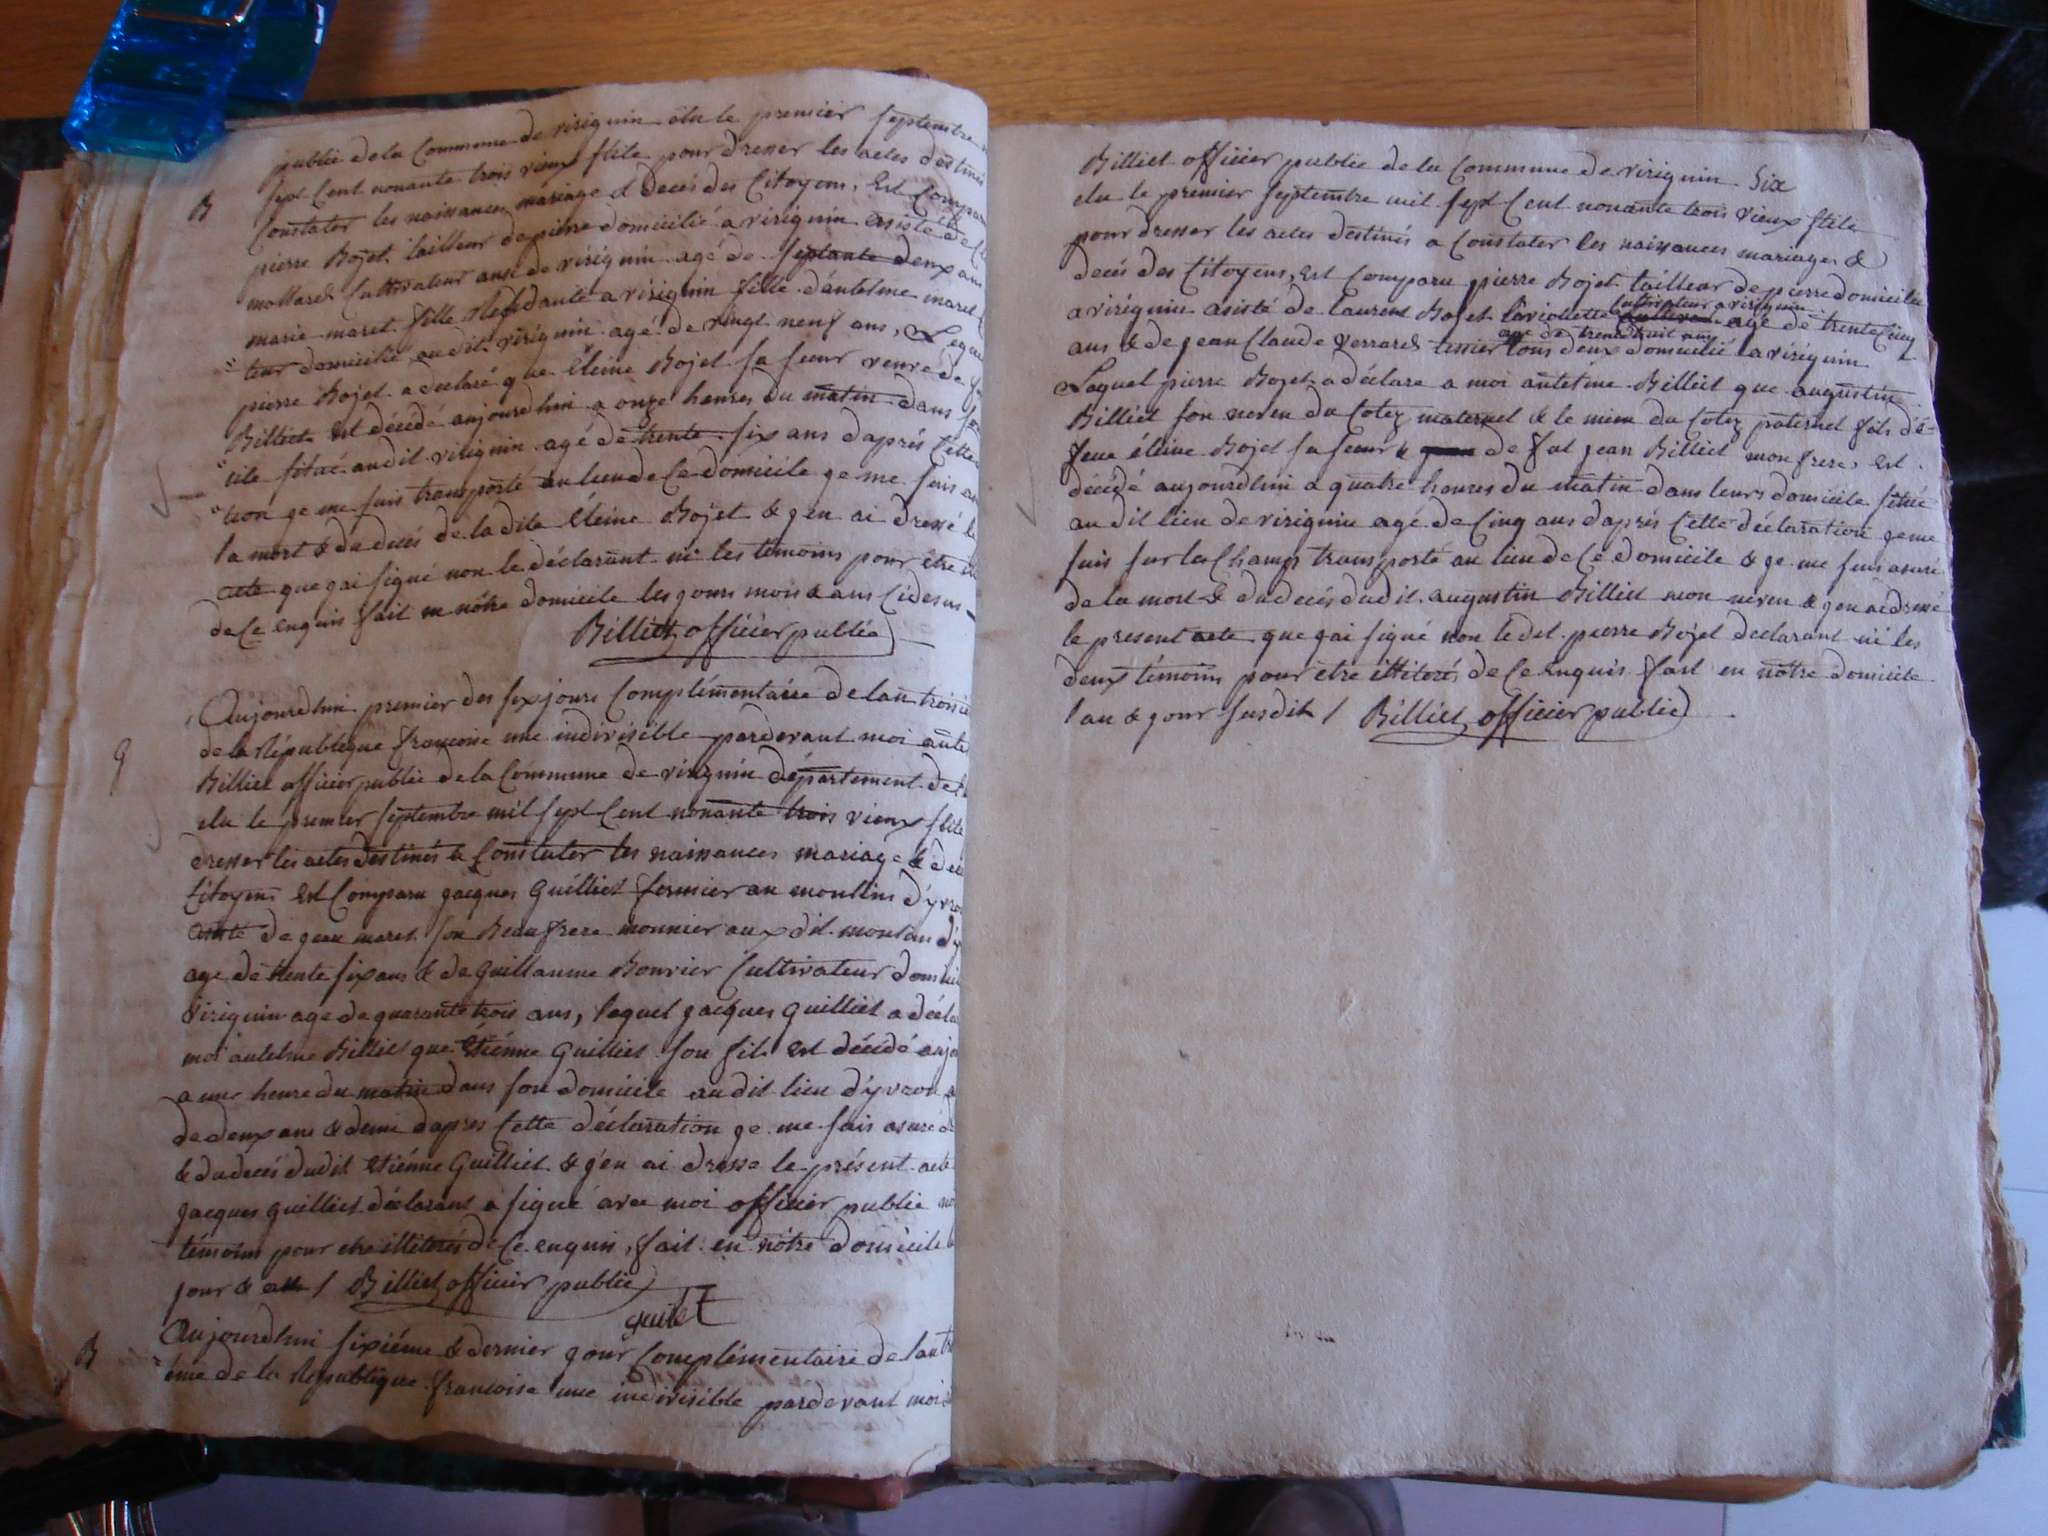 publie dela Commune de virignin élu le premier septembre
B
sept Cent nonante trois vieux stile pour dresser les actes destinés
Constater les naissances mariage & decés des Citoyens, Est Compar
pierre Bojet tailleur de pierre domicilié a virignin asisté de
mollard Cultivateur ausi de virignin agé de septante deux ans
marie maret fille Residante a virignin fille d'antelme maret
teur domicilié audit virignin agé de vingt neuf ans, Lequel
pierre Bojet a declaré que éleine Bojet sa seur veuve de
Billiet est décédé aujourdhui a onze heures du matin dans
cile situé audit virignin agé de trente six ans d'aprés Cette
tion ge me suis transporté au lieu de Ce domicile ge me suis
la mort & du decés de la dite éleine Bojet & gen ai dressé le
acte que gai signé non le déclarant ni les temoins pour être
de Ce enquis fait en nôtre domicile les gours mois & ans Cidesus
Billiet officier publie
Aujourdhui premier des six jours Complémentaire de lan troisie
de la République francoise une indivisible pardevant moi ante
g
Billiet officier publie de la Commune de virignin département de
elu le premier septembre mil sept Cent nonante trois vieux stile
dresser les actes destinés a Constater les naissances mariage & dec
Citoyens est Comparu gacques Guilliet fermier au moulins d'yvro
asisté de gean maret son Beau frere monnier aux dit moulin d'y
age de trente six ans & de Guillaume Bouvier Cultivateur domici
virignin age de quarante trois ans, lequel gacques Guilliet a décla
moi antelme Billiet que Etiénne Guilliet son fils est décédé aujo
a une heure du matin dans son domicile audit lieu d'yvron
de deux ans & demi daprés Cette déclaration ge me suis asuré
& du decés dudit Etiénne Guilliet & g'en ai dresse le présent acte
gacques guilliet déclarant a signé avec moi officier publie
témoins pour etre illiterés de Ce enquis, fait en nôtre domicile
jour & an / Billiet officier publie
guilet
B
Aujourdhui sixiéme & dernier gour Complémentaire de lan tr
éme de la Republique francoise une indivisible pardevant moi
Billiet officier publie de la Commune de virignin Six
elu le premier septembre mil sept Cent nonante trois vieux stile
pour dresser les actes destinés a Constater les naissances mariages &
decés des Citoyens, est Comparu pierre Bojet tailleur de pierre domicilié
Cultivateur a virignin
a virignin asisté de laurent Bojet laviolette agé de trente Cinq
agé de trente huit ans
ans & de jean Claude verrard tessier tous deux domicilié a virignin
Lequel pierre Bojet a déclare a moi antelme Billiet que augustin
Billiet son neveu du Cotez maternel & le mien du Cotez paternel fils dé-
feue éleine Bojet sa seur & de fut jean Billiet mon frere, est
décédé aujourdhui a quatre heures du matin dans leurs domicile situé
au dit lieu de virignin agé de Cinq ans daprés Cette déclaration ge me
suis sur le Champs transporté au lieu de Ce domicile & ge me suis asuré
de la mort & du decés dudit augustin Billiet mon neveu & gen ai dressé
le present acte que gai signé non le dit pierre Bojet declarant ni les
deux témoins pour etre illiterés de Ce enquis fait en nôtre domicile
lan & gour susdit / Billiet officier publie